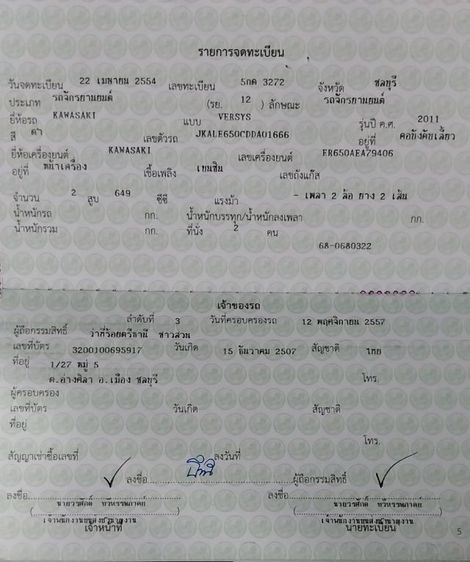 รายการจดทะเบียน
วันจดทะเบียน 22 เมษายน 2554 เลขทะเบียน 5กด 3272 จังหวัด ชลบุรี
ประเภท รถจักรยานยนต์ (รย. 12 ) ลักษณะ รถจักรยานยนต์
ยี่ห้อรถ KAWASAKI แบบ VERSYS รุ่นปี ค.ศ. 2011
สี ดำ เลขตัวรถ JKALE650CDDA01666 อยู่ที่ คอบังคับเลี้ยว
ยี่ห้อเครื่องยนต์ KAWASAKI เลขเครื่องยนต์ ER650AEA79406
อยู่ที่ หน้าเครื่อง เชื้อเพลิง เบนซิน เลขถังแก๊ส
จำนวน 2 สูบ 649 ซีซี แรงม้า - เพลา 2 ล้อ ยาง 2 เส้น
น้ำหนักรถ กก. น้ำหนักบรรทุก/น้ำหนักลงเพลา กก.
น้ำหนักรวม กก. ที่นั่ง 2 คน
68-0680322
เจ้าของรถ
ลำดับที่ 3 วันที่ครอบครองรถ 12 พฤศจิกายน 2557
ผู้ถือกรรมสิทธิ์ ว่าที่ร้อยตรีธานี ขาวสวน
เลขที่บัตร 3200100695917 วันเกิด 15 ธันวาคม 2507 สัญชาติ ไทย
ที่อยู่ 1/27 หมู่ 5
ต.อ่างศิลา อ.เมือง ชลบุรี โทร.
ผู้ครอบครอง
เลขที่บัตร วันเกิด สัญชาติ
ที่อยู่
โทร.
สัญญาเช่าซื้อเลขที่ ลงวันที่
ลงชื่อ ผู้ถือกรรมสิทธิ์
ลงชื่อ ลงชื่อ
เจ้าหน้าที่ นายทะเบียน
5